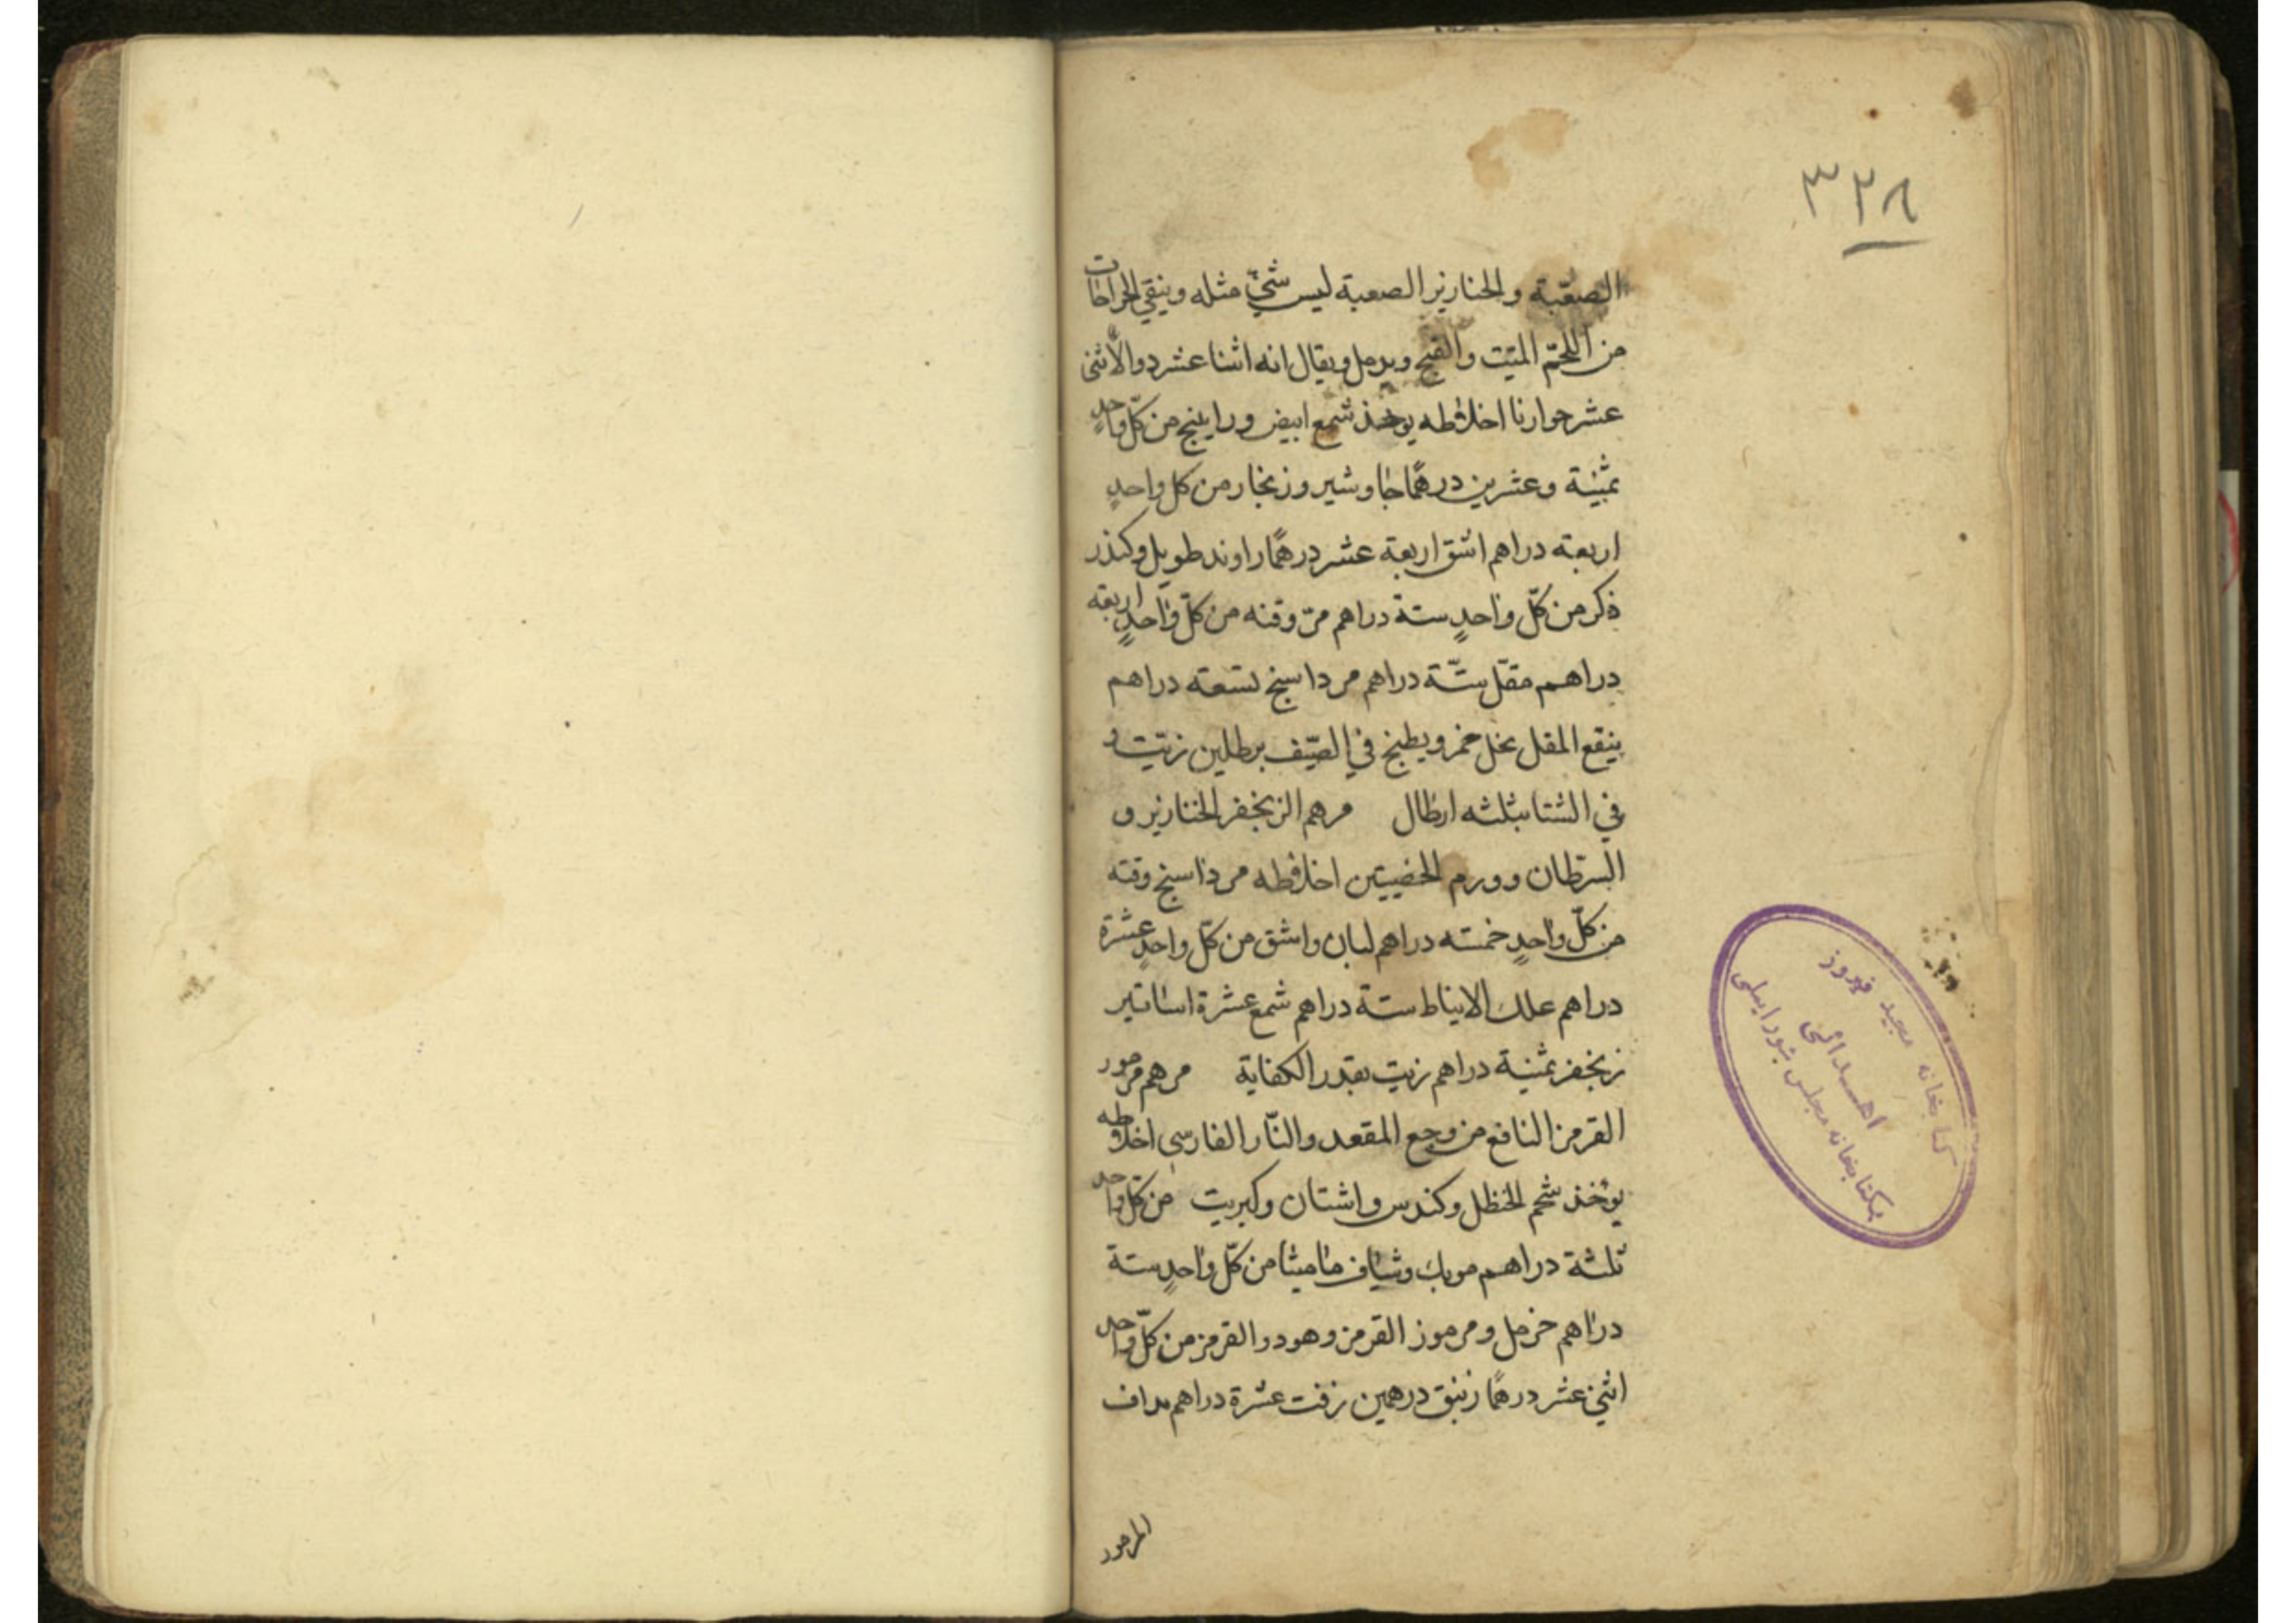 ٣٢٨
الصعبة والخنازير الصعبة ليس شيٌ مثله وينقي الجراحات
من اللحم الميت والقيح ويدمل ويقال انه اثنا عشر دوا لاثنى
عشر حوارنا اخلاطه يوخذ شمع ابيض وراينج من كلّ واحدٍ
ثمنية وعشرين درهمًا جاوشير وزنجار من كل واحدٍ
اربعة دراهم اشق اربعة عشر درهمًا راوند طويل وكندر
ذكر من كلّ واحدٍ ستة دراهم مرّ وقنه من كلّ واحدٍ اربعة
دراهم مقل ستّة دراهم مرداسنج تسعة دراهم
ينقع المقل بخل خمر ويطبخ في الصّيف برطلين زيت و
في الشتا بثلثه ارطال مرهم الزنجفر للخنازير و
السرّطان وورم الخصيتين اخلاطه مرداسنج وقنه
من كلّ واحدٍ خمسة دراهم لبان واشق من كلّ واحدٍ عشرة
دراهم علك الانباط ستة دراهم شمع عشرة اساتير
زنجفر ثمنية دراهم زيت بقدر الكفاية مرهم مرمور
القرمز النافع من وجع المقعد والنّار الفارسي اخلاطه
يؤخذ شحم الحنظل وكندس واشنان وكبريت من كلّ واحد
ثلثة دراهم مويك وشياف ماميثا من كلّ واحدٍ ستة
دراهم خرمل ومرموز القرمز وهو دود القرمز من كلّ واحد
اثنى عشر درهمًا زنبق درهمين زفت عشرة دراهم مداف
المرمور
كتابخانه مجید فیروز
اهدائی
بکتابخانه مجلس شورایملی